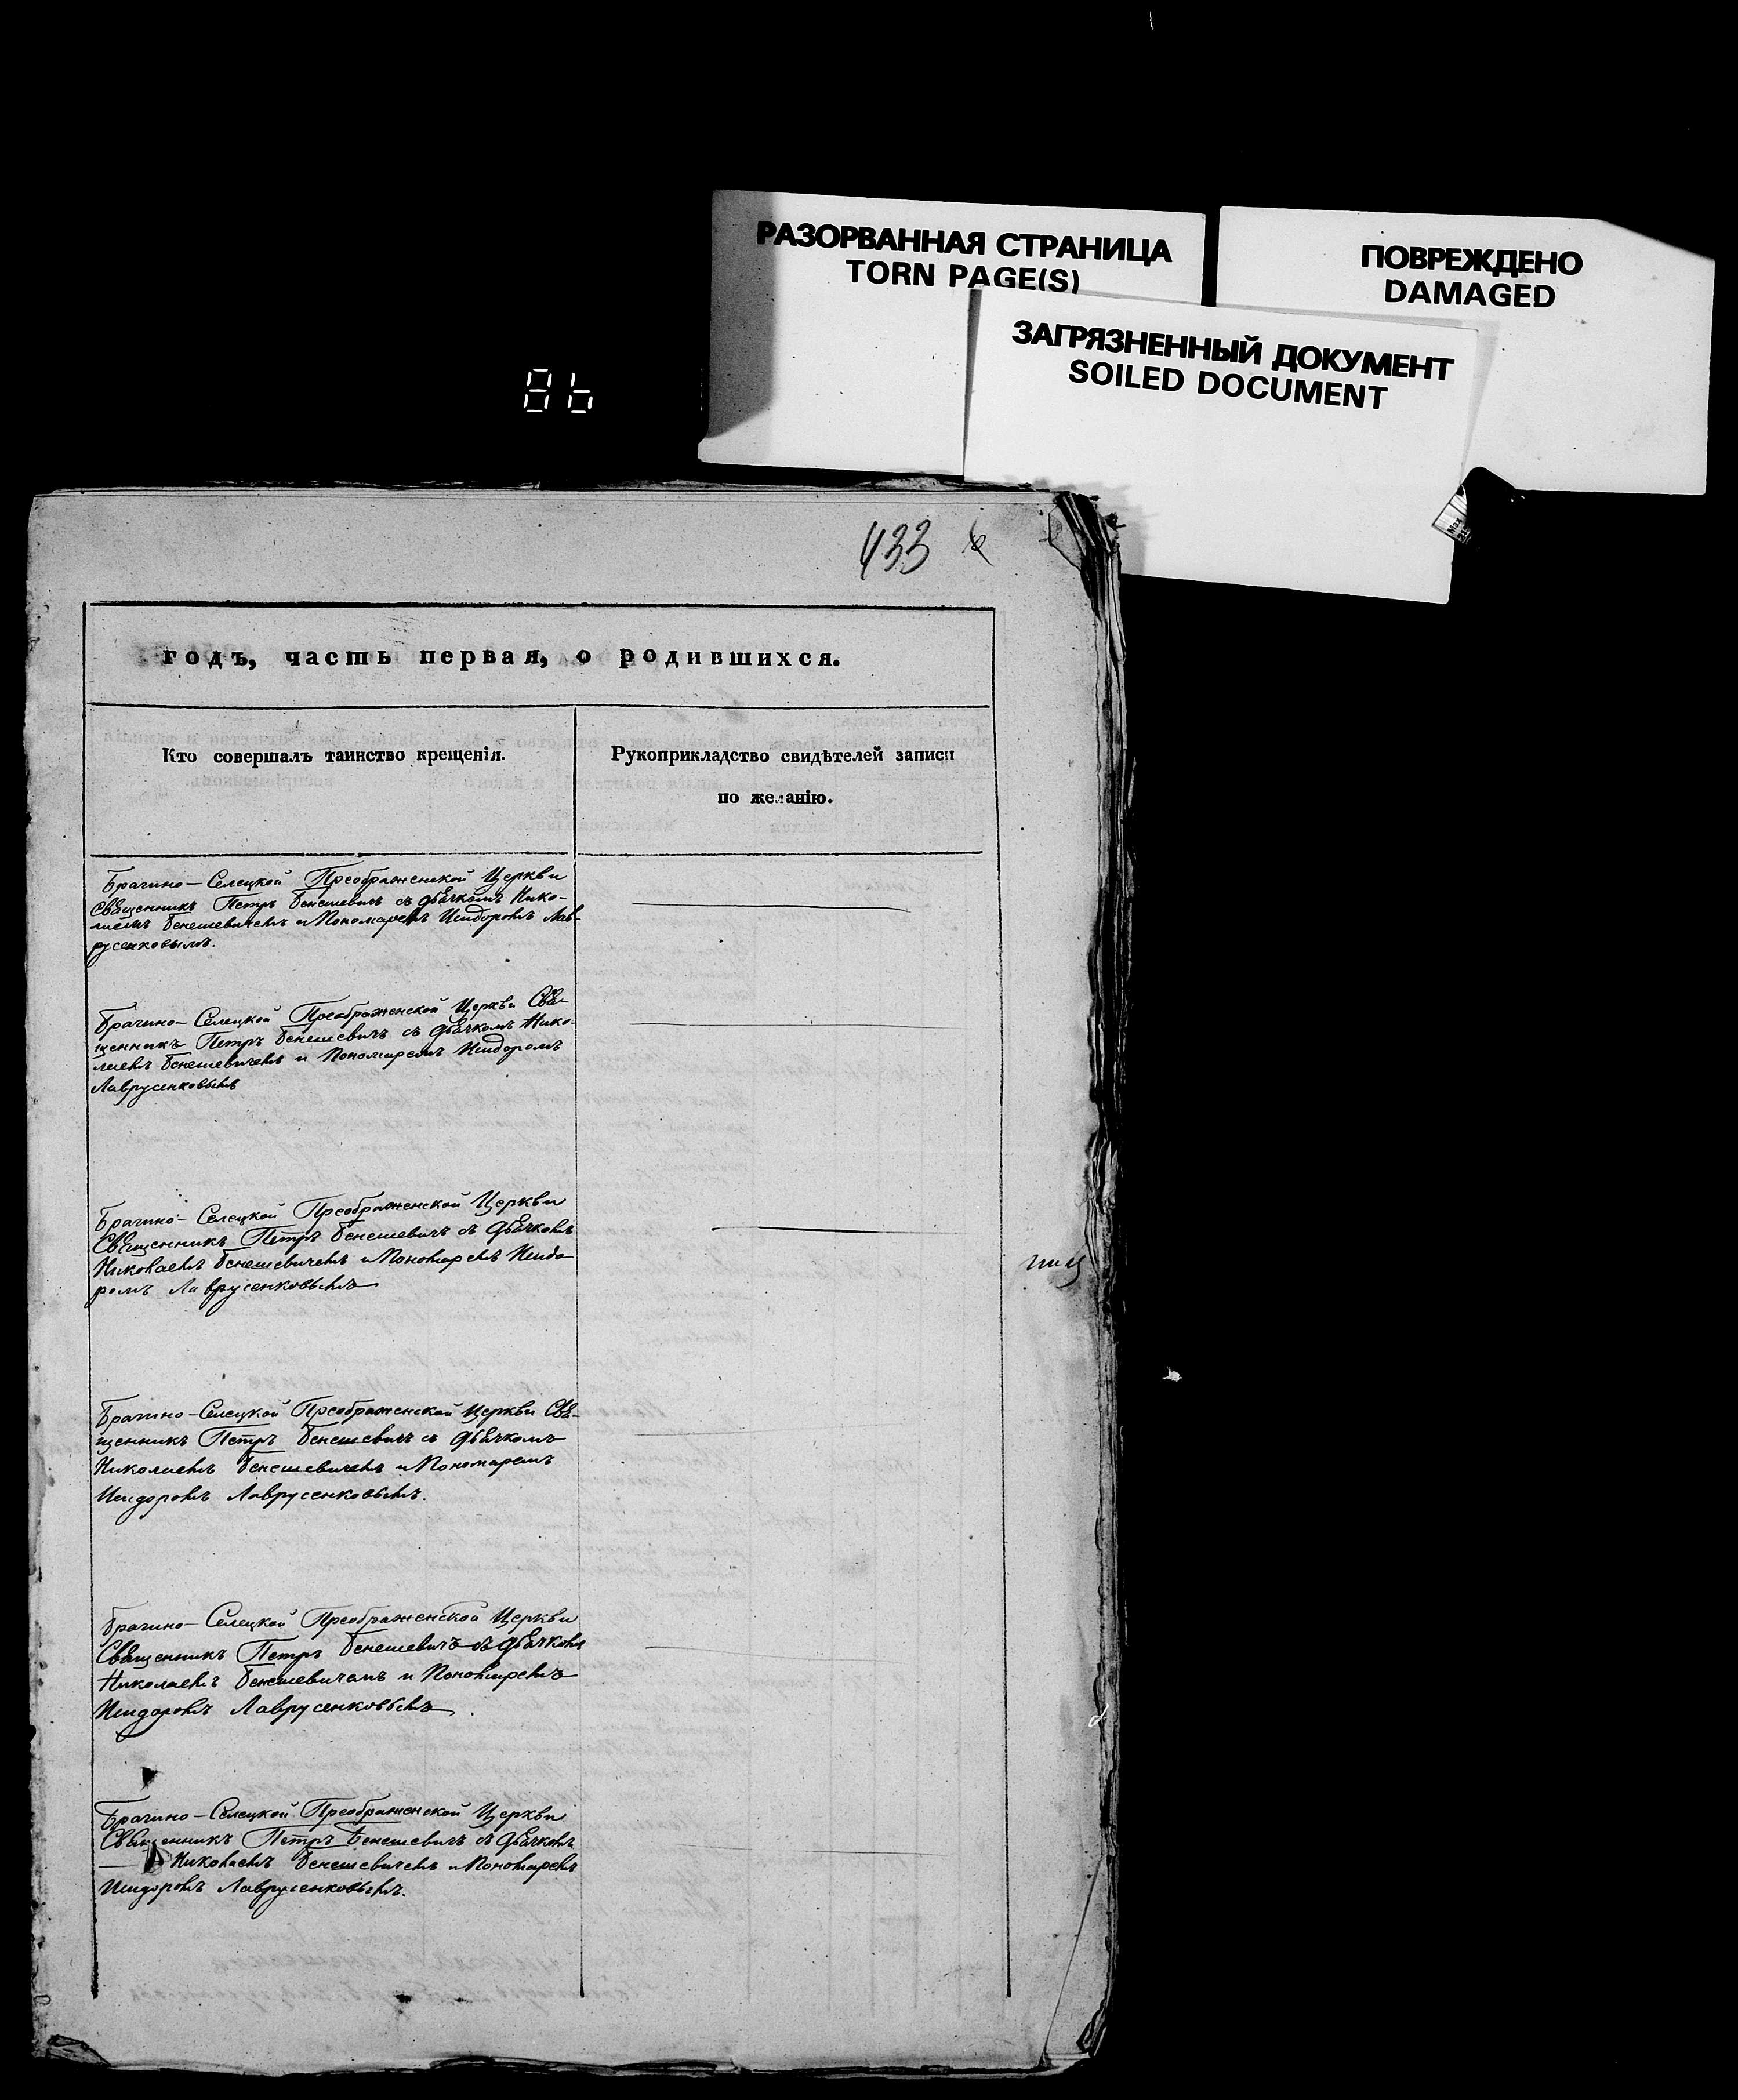 РАЗОРВАННАЯ СТРАНИЦА
TORN PAGE(S)
ПОВРЕЖДЕНО
DAMAGED
ЗАГРЯЗНЕННЫЙ ДОКУМЕНТ
SOILED DOCUMENT
433
годъ, часть первая, о родившихся.
Кто совершалъ таинство крещенія.
Рукоприкладство свидѣтелей записи
по желанію.
Брагино-Селецкой Преображенской Церкви
Священникъ Петръ Бенешевичъ съ дьячкомъ Нико-
лаемъ Бенешевичемъ и Пономаремъ Исидоромъ Лав-
русенковымъ.
Брагино-Селецкой Преображенской Церкви Свя-
щенникъ Петръ Бенешевичъ съ дьячкомъ Нико-
лаемъ Бенешевичемъ и Пономаремъ Исидоромъ
Лаврусенковымъ
Брагино-Селецкой Преображенской Церкви
Священникъ Петръ Бенешевичъ съ дьячкомъ
Николаемъ Бенешевичемъ и Пономаремъ Исидо-
ромъ Лаврусенковымъ
Брагино-Селецкой Преображенской Церкви Свя-
щенникъ Петръ Бенешевичъ съ дьячкомъ
Николаемъ Бенешевичемъ и Пономаремъ
Исидоромъ Лаврусенковымъ.
Брагино-Селецкой Преображенской Церкви
Священникъ Петръ Бенешевичъ съ дьячкомъ
Николаемъ Бенешевичемъ и Пономаремъ
Исидоромъ Лаврусенковымъ.
Брагино-Селецкой Преображенской Церкви
Священникъ Петръ Бенешевичъ съ дьячкомъ
Николаемъ Бенешевичемъ и Пономаремъ
Исидоромъ Лаврусенковымъ.